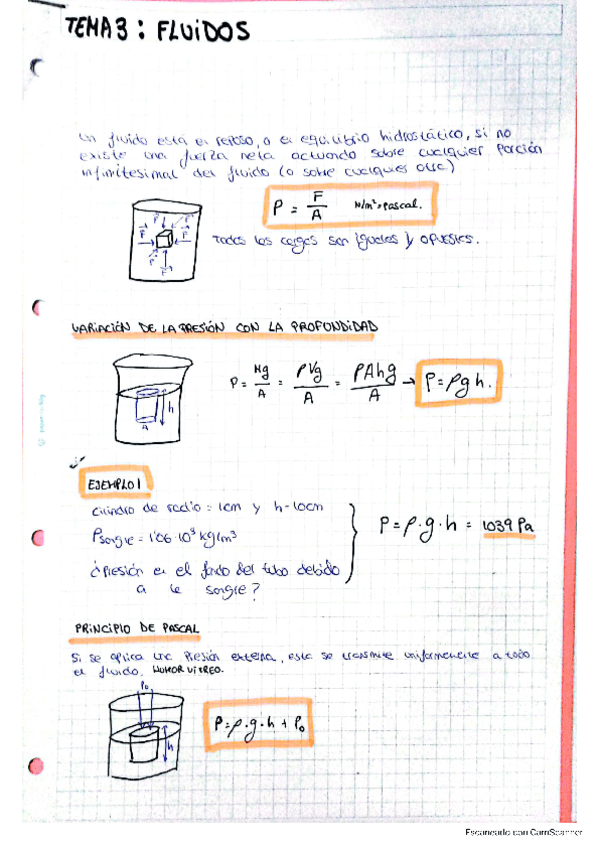 TEMA 3: FLUIDOS
Un fluido está en reposo, o en equilibrio hidrostático, si no
existe una fuerza neta actuando sobre cualquier porción
infinitesimal del fluido (o sobre cualquier otra)
P = F/A N/m² = Pascal.
Todas las cargas son iguales y opuestas.
VARIACIÓN DE LA PRESIÓN CON LA PROFUNDIDAD
P = Mg/A = ρVg/A = ρAhg/A → P = ρgh.
h
A
EJEMPLO 1
cilindro de radio = 1cm y h = 10cm
ρsangre = 1'06·10³ kg/m³
P = ρ·g·h = 1039 Pa
¿Presión en el fondo del tubo debido
a la sangre?
PRINCIPIO DE PASCAL
Si se aplica una presión externa, esta se transmite uniformemente a todo
el fluido. HUMOR VITREO.
P₀
h
P = ρ·g·h + P₀
Escaneado con CamScanner